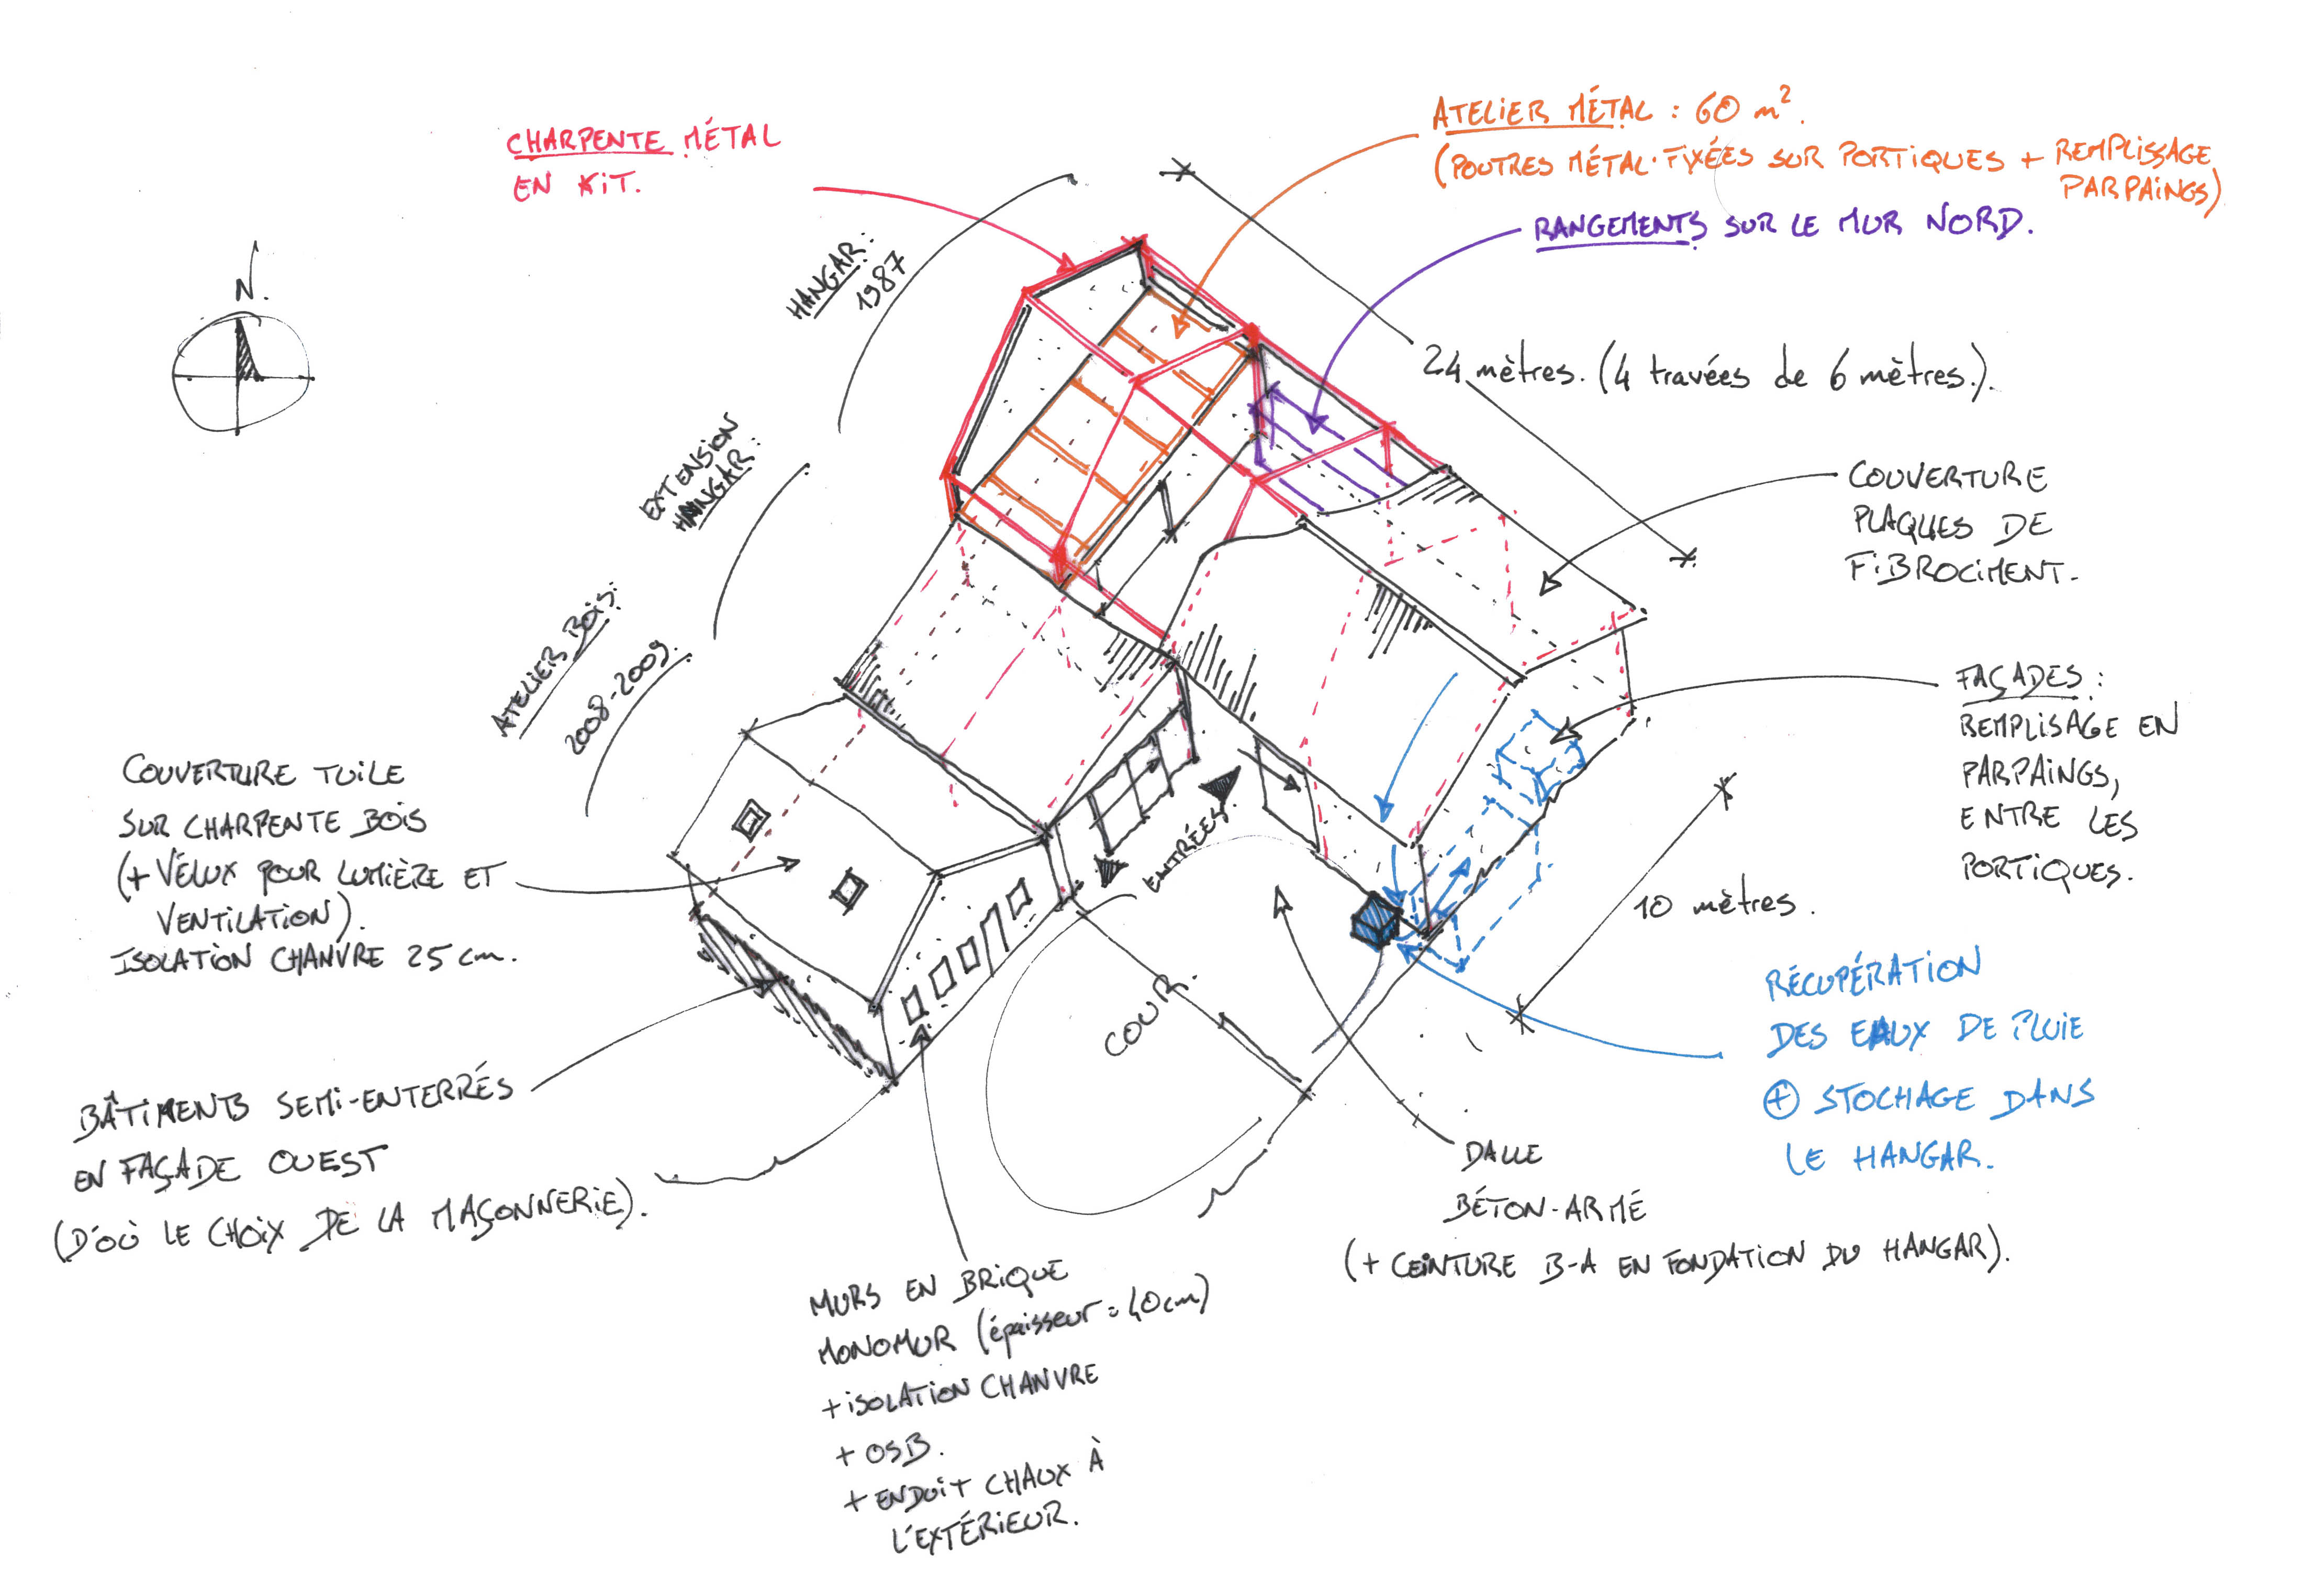 CHARPENTE MÉTAL
EN KIT.
ATELIER MÉTAL : 60 m².
(POUTRES MÉTAL FIXÉES SUR PORTIQUES + REMPLISSAGE
PARPAINGS)
RANGEMENTS SUR LE MUR NORD.
N.
HANGAR:
1987
24 mètres. (4 travées de 6 mètres.).
EXTENSION
HANGAR:
COUVERTURE
PLAQUES DE
FIBROCIMENT.
ATELIER BOIS:
2008-2009.
FAÇADES :
REMPLISAGE EN
PARPAINGS,
ENTRE LES
PORTIQUES.
COUVERTURE TUILE
SUR CHARPENTE BOIS
(+ VÉLUX POUR LUMIÈRE ET
VENTILATION).
ISOLATION CHANVRE 25 cm.
ENTRÉES.
10 mètres.
COUR.
RÉCUPÉRATION
DES EAUX DE PLUIE
+ STOCHAGE DANS
LE HANGAR.
BÂTIMENTS SEMI-ENTERRÉS
EN FAÇADE OUEST
(D'OÙ LE CHOIX DE LA MAÇONNERIE).
DALLE
BÉTON-ARMÉ
(+ CEINTURE B-A EN FONDATION DU HANGAR).
MURS EN BRIQUE
MONOMUR (épaisseur = 40cm)
+ ISOLATION CHANVRE
+ OSB.
+ ENDUIT CHAUX À
L'EXTÉRIEUR.